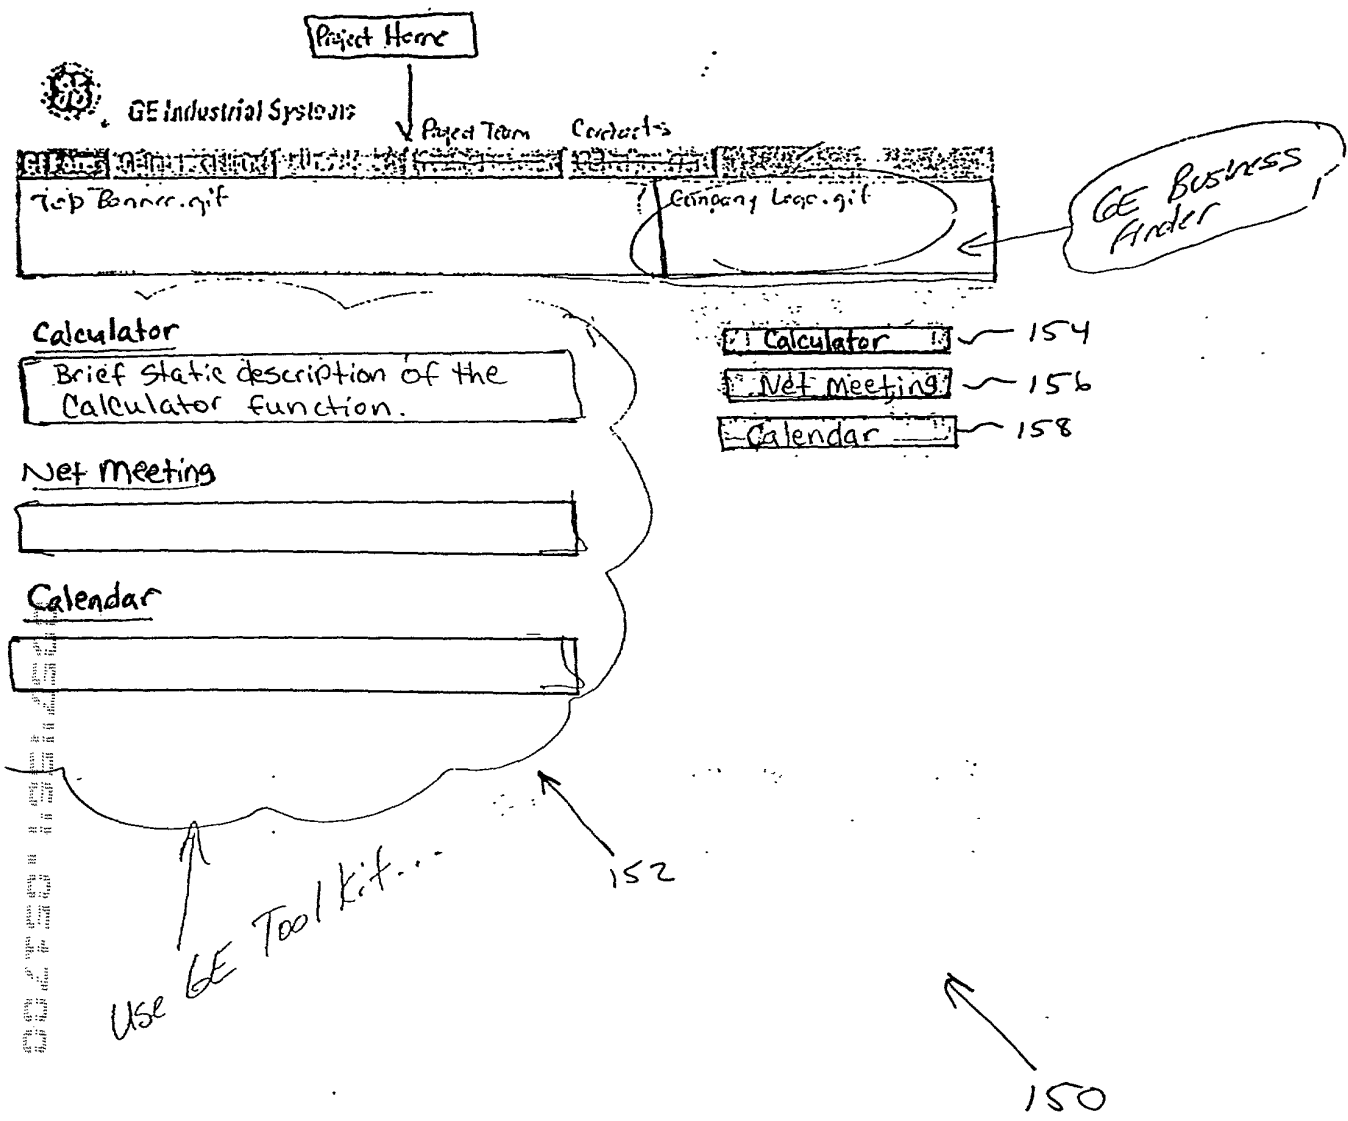 Project Home
GE Industrial Systems
Project Team
Contacts
Top Banner.gif
Company Logo.gif
GE Business
Finder
Calculator
Brief static description of the
Calculator function.
Net Meeting
Calendar
Calculator
154
Net Meeting
156
Calendar
158
152
Use GE Toolkit...
150